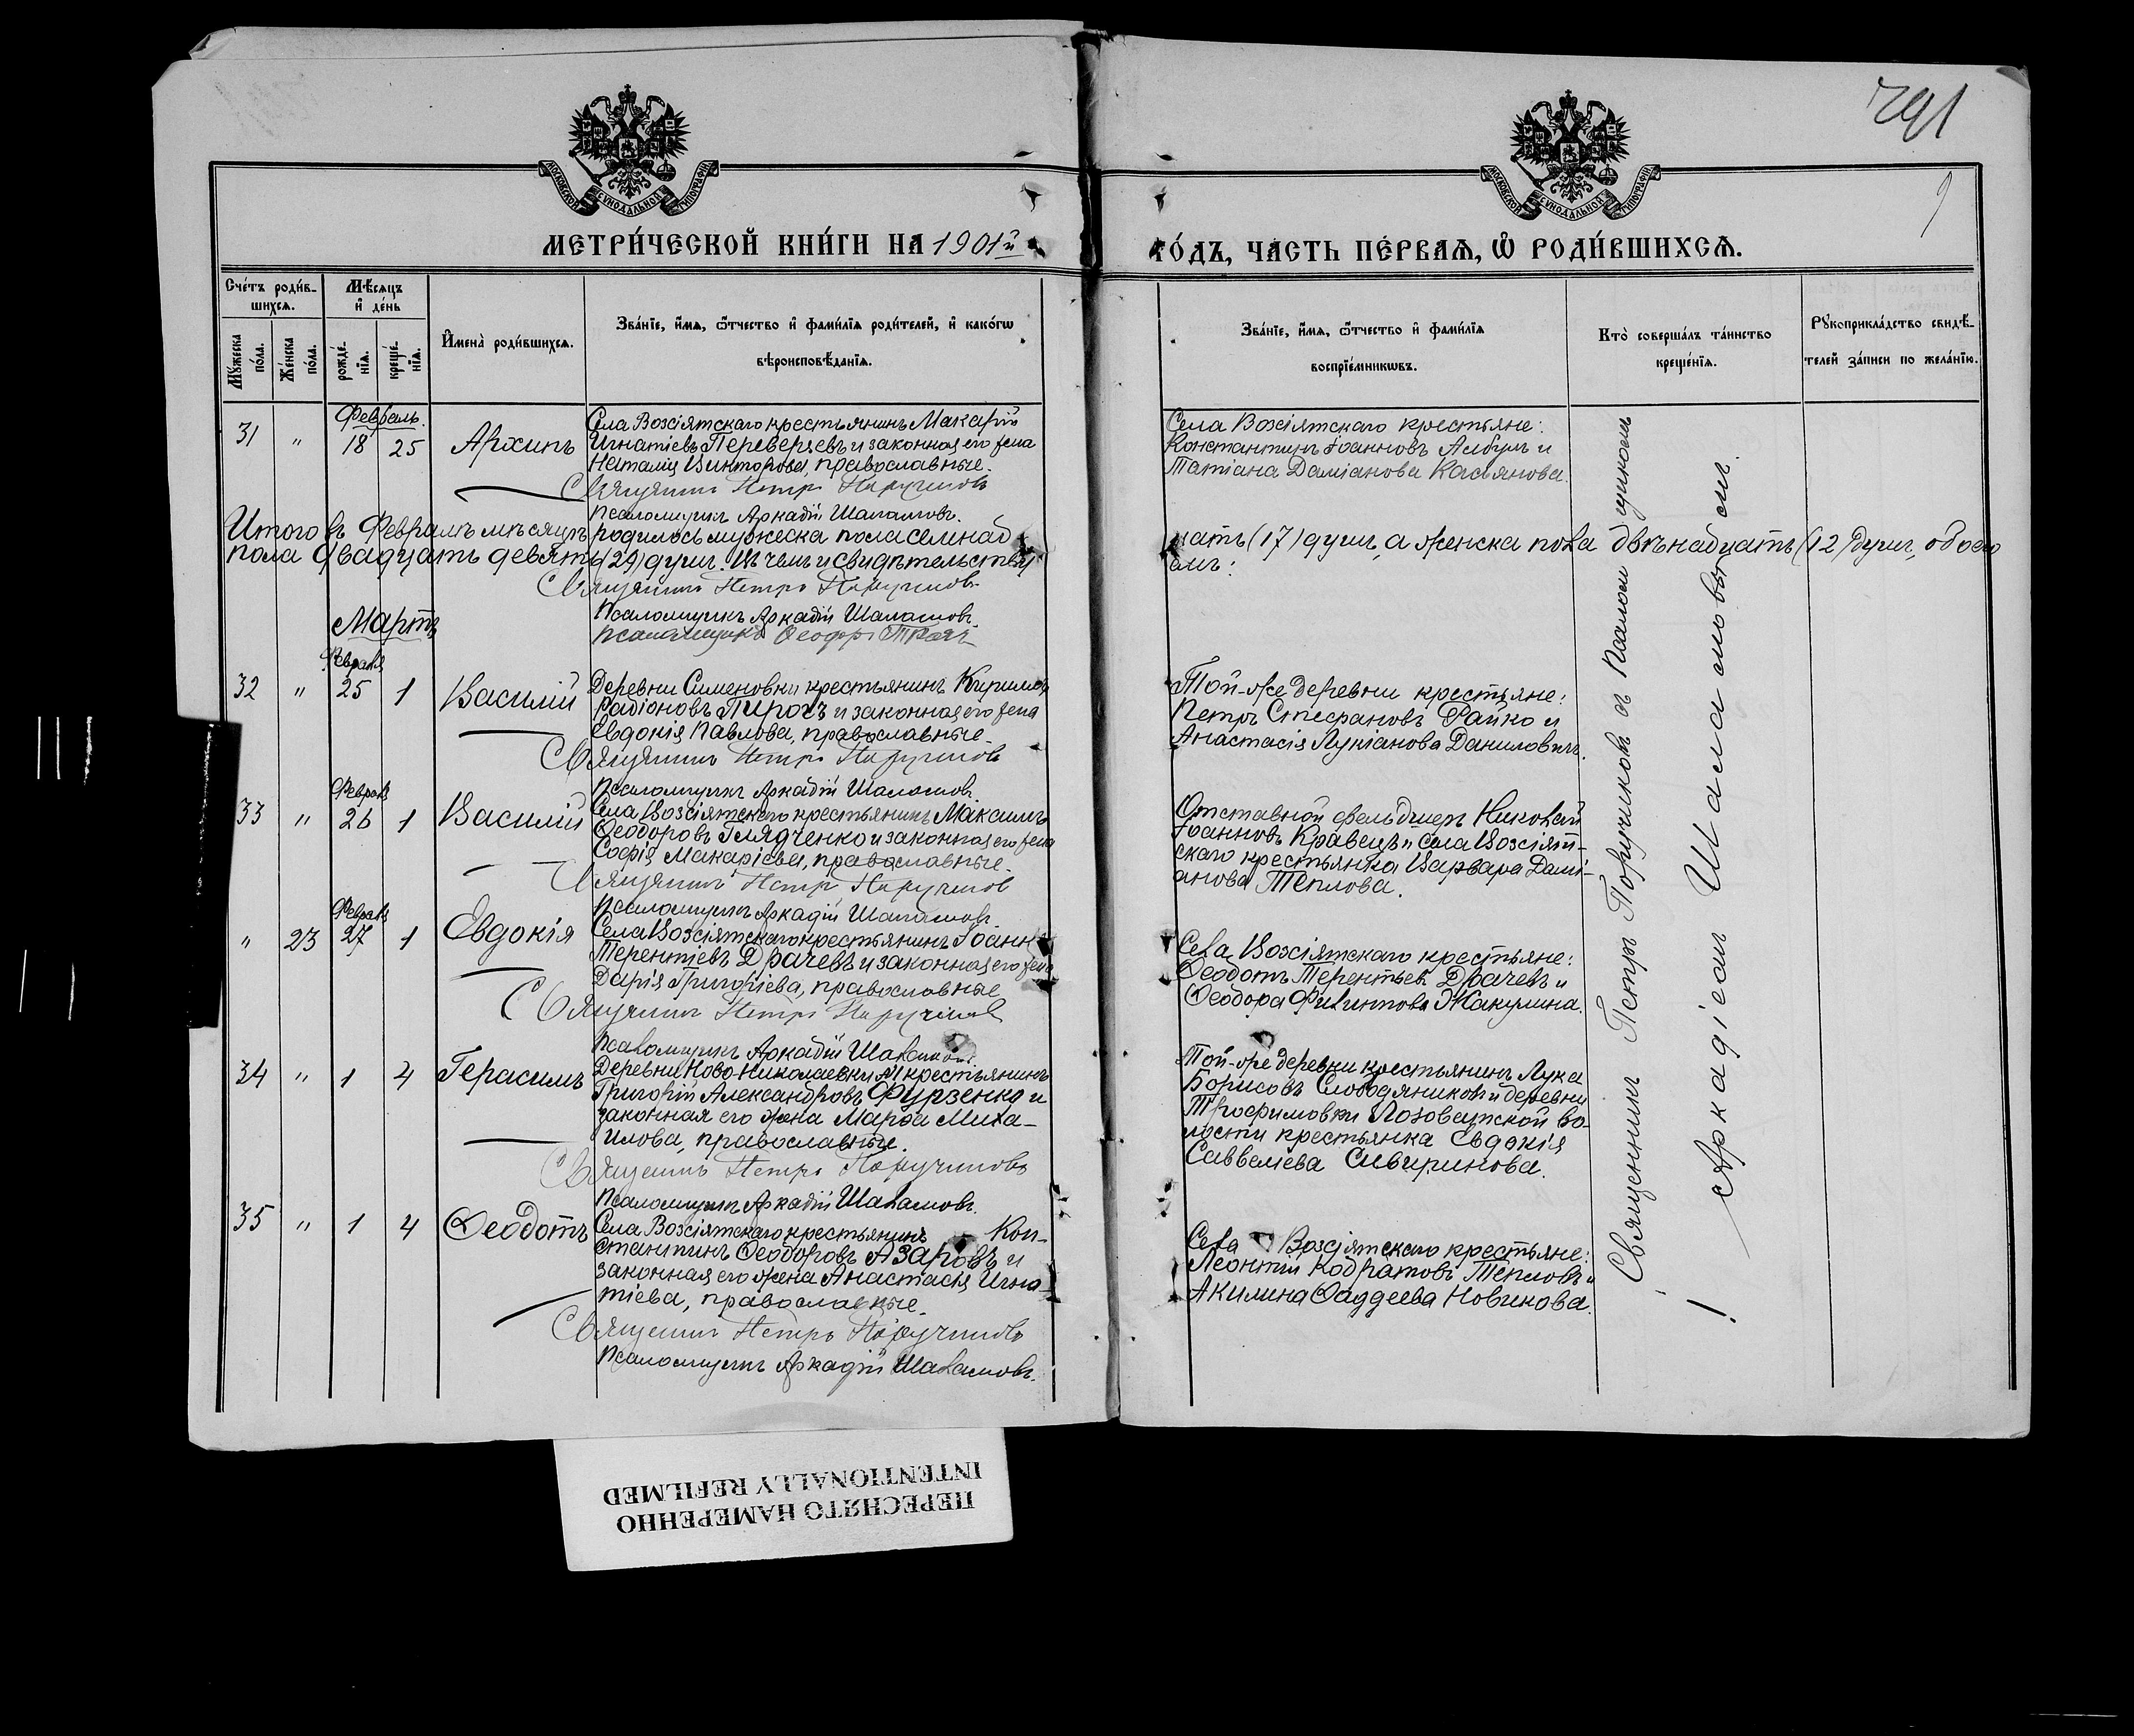 791
9
МОСКОВСКОЙ СѴНОДАЛЬНОЙ ТИПОГРАФІИ
МОСКОВСКОЙ СѴНОДАЛЬНОЙ ТИПОГРАФІИ
МЕТРИ́ЧЕСКОЙ КНИ́ГИ НА 1901й
ГО́ДЪ, ЧА́СТЬ ПЕ́РВАѦ, Ѽ РОДИ́ВШИХСѦ.
Сче́тъ роди́в-
шихсѧ.
Мѣ́сѧцъ
и҆ де́нь
Мꙋ́жеска
по́ла.
Же́нска
по́ла.
рожде́-
нїѧ.
креще́-
нїѧ.
И҆мена̀ роди́вшихсѧ.
Зва́нїе, и҆́мѧ, ѻ҆́тчество и҆ фами́лїѧ роди́телей, и҆ како́гѡ
вѣроисповѣ́данїѧ.
Зва́нїе, и҆́мѧ, ѻ҆́тчество и҆ фами́лїѧ
воспрїе́мникѡвъ.
Кто̀ соверша́лъ та́инство
креще́нїѧ.
Рꙋкоприкла́дство свидѣ́-
телей за́писи по жела́нїю.
Февраль.
31 " 18 25 Архипъ
Села Возсіятскаго крестьянинъ Макарій
Игнатіевъ Переверзевъ и законная его жена
Наталія Викторова, православные.
Священникъ Петръ Поручиковъ
Псаломщикъ Аркадій Шаламовъ.
Села Возсіятскаго крестьяне:
Константинъ Іоанновъ Албулъ и
Татіана Даміанова Касьянова.
Итого въ Февралѣ мѣсяцѣ родилось мужеска пола семнад
цать (17) душъ, а женска пола двѣнадцать (12) душъ, обоего
пола двадцать девять (29) душъ. Въ чемъ и свидѣтельству
емъ:
Священникъ Петръ Поручиковъ
Псаломщикъ Аркадій Шаламовъ.
Псаломщикъ Ѳеофр
Мартъ
Февраля
32 " 25 1 Василій
Деревни Сименовки крестьянинъ Кириллъ
Радіоновъ Пирогъ и законная его жена
Евдокія Павлова, православные.
Священникъ Петръ Поручиковъ
Псаломщикъ Аркадій Шаламовъ
Той-же деревни крестьяне:
Петръ Стефановъ Райко и
Анастасія Лукіанова Даниловичъ.
Февраля
33 " 26 1 Василій
Села Возсіятскаго крестьянинъ Максимъ
Ѳеодоровъ Глядченко и законная его жена
Софія Макаріева, православные.
Священникъ Петръ Поручиковъ
Псаломщикъ Аркадій Шаламовъ.
Отставной фельдшеръ Николай
Іоанновъ Кравецъ и села Возсіят-
скаго крестьянка Варвара Дамі-
анова Теплова.
Февраля
" 23 27 1 Евдокія
Села Возсіятскаго крестьянинъ Іоаннъ
Терентіевъ Драчевъ и законная его жена
Дарія Григоріева, православные
Священникъ Петръ Поручиковъ
Псаломщикъ Аркадій Шаламовъ.
Села Возсіятскаго крестьяне:
Ѳеодотъ Терентьевъ Драчевъ и
Ѳеодора Филиппова Жакулина.
34 " 1 4 Герасимъ
Деревни Ново-Николаевки крестьянинъ
Григорій Александровъ Фурзенко и
законная его жена Марѳа Миха-
илова, православные.
Священникъ Петръ Поручиковъ
Псаломщикъ Аркадій Шаламовъ.
Той-же деревни крестьянинъ Лука
Борисовъ Слободяниковъ и деревни
Трофимовки Лозоватской во-
лости крестьянка Евдокія
Саввеліева Сивиринова.
35 " 1 4 Ѳеодотъ
Села Возсіятскаго крестьянинъ Кон-
стантинъ Ѳеодоровъ Азаровъ и
законная его жена Анастасія Игна-
тіева, православные.
Священникъ Петръ Поручиковъ
Псаломщикъ Аркадій Шаламовъ.
Села Возсіятскаго крестьяне:
Леонтій Кодратовъ Тепловъ и
Акилина Ѳаддеева Новикова.
Священникъ Петръ Поручиковъ съ Псаломщикомъ
Аркадіемъ Шаламовымъ.
ПЕРЕСНЯТО НАМЕРЕННО
INTENTIONALLY REFILMED